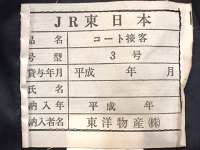 JR東日本
品名 コート接客
号型 3号
貸与年月 平成 年 月
氏名
納入年 平成 年
納入者名 東洋物産㈱